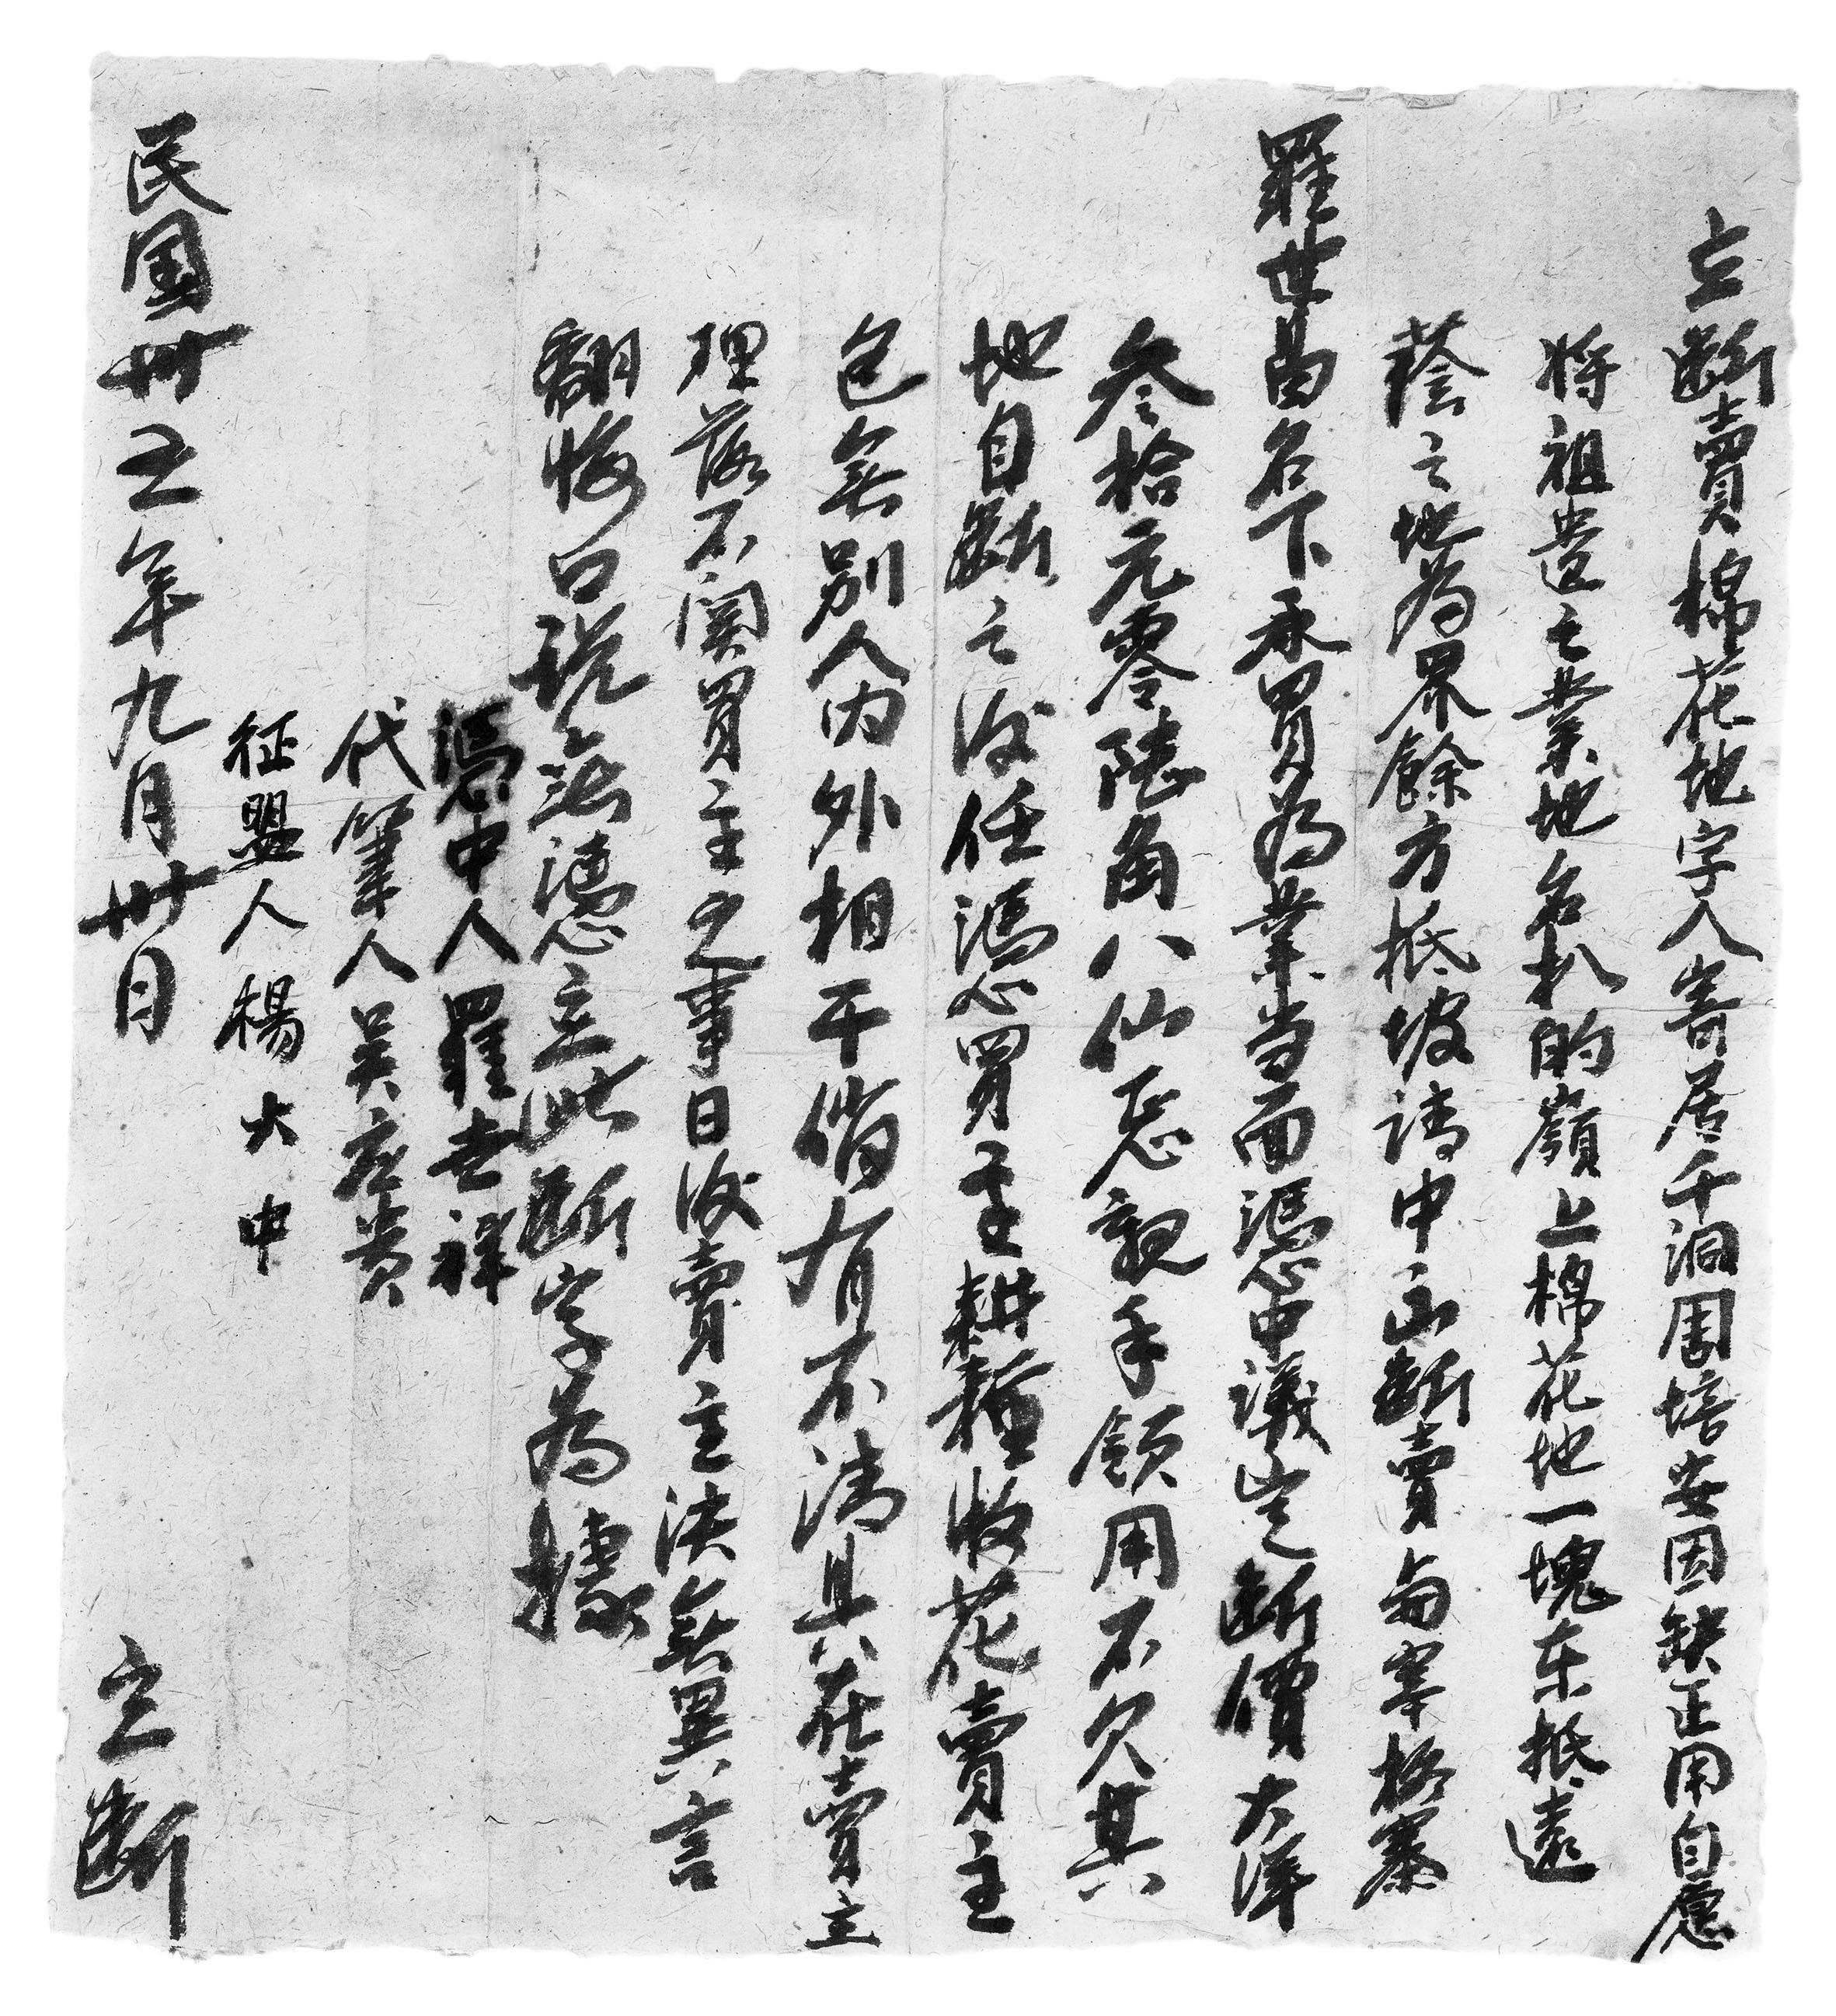 立断賣棉花地字人寄居千洞周培安因缺正用自愿
将祖遗之業地名扒的嶺上棉花地一塊东抵遠
蔭之地為界餘方抵坡請中正断賣與宰格寨
羅世昌名下承買為業当面憑中議定断價大洋
叁拾元零陸角八仙悉親手領用不欠其
地自断之後任憑買主耕種收花賣主
包無别人内外相干倘有不清具在賣主
理落不関買主之事日後賣主決無異言
翻悔口説無憑立此断字為據
憑中人羅世祥
代筆人吴应贵
征盟人楊大中
民國卅五年九月卅日 立断